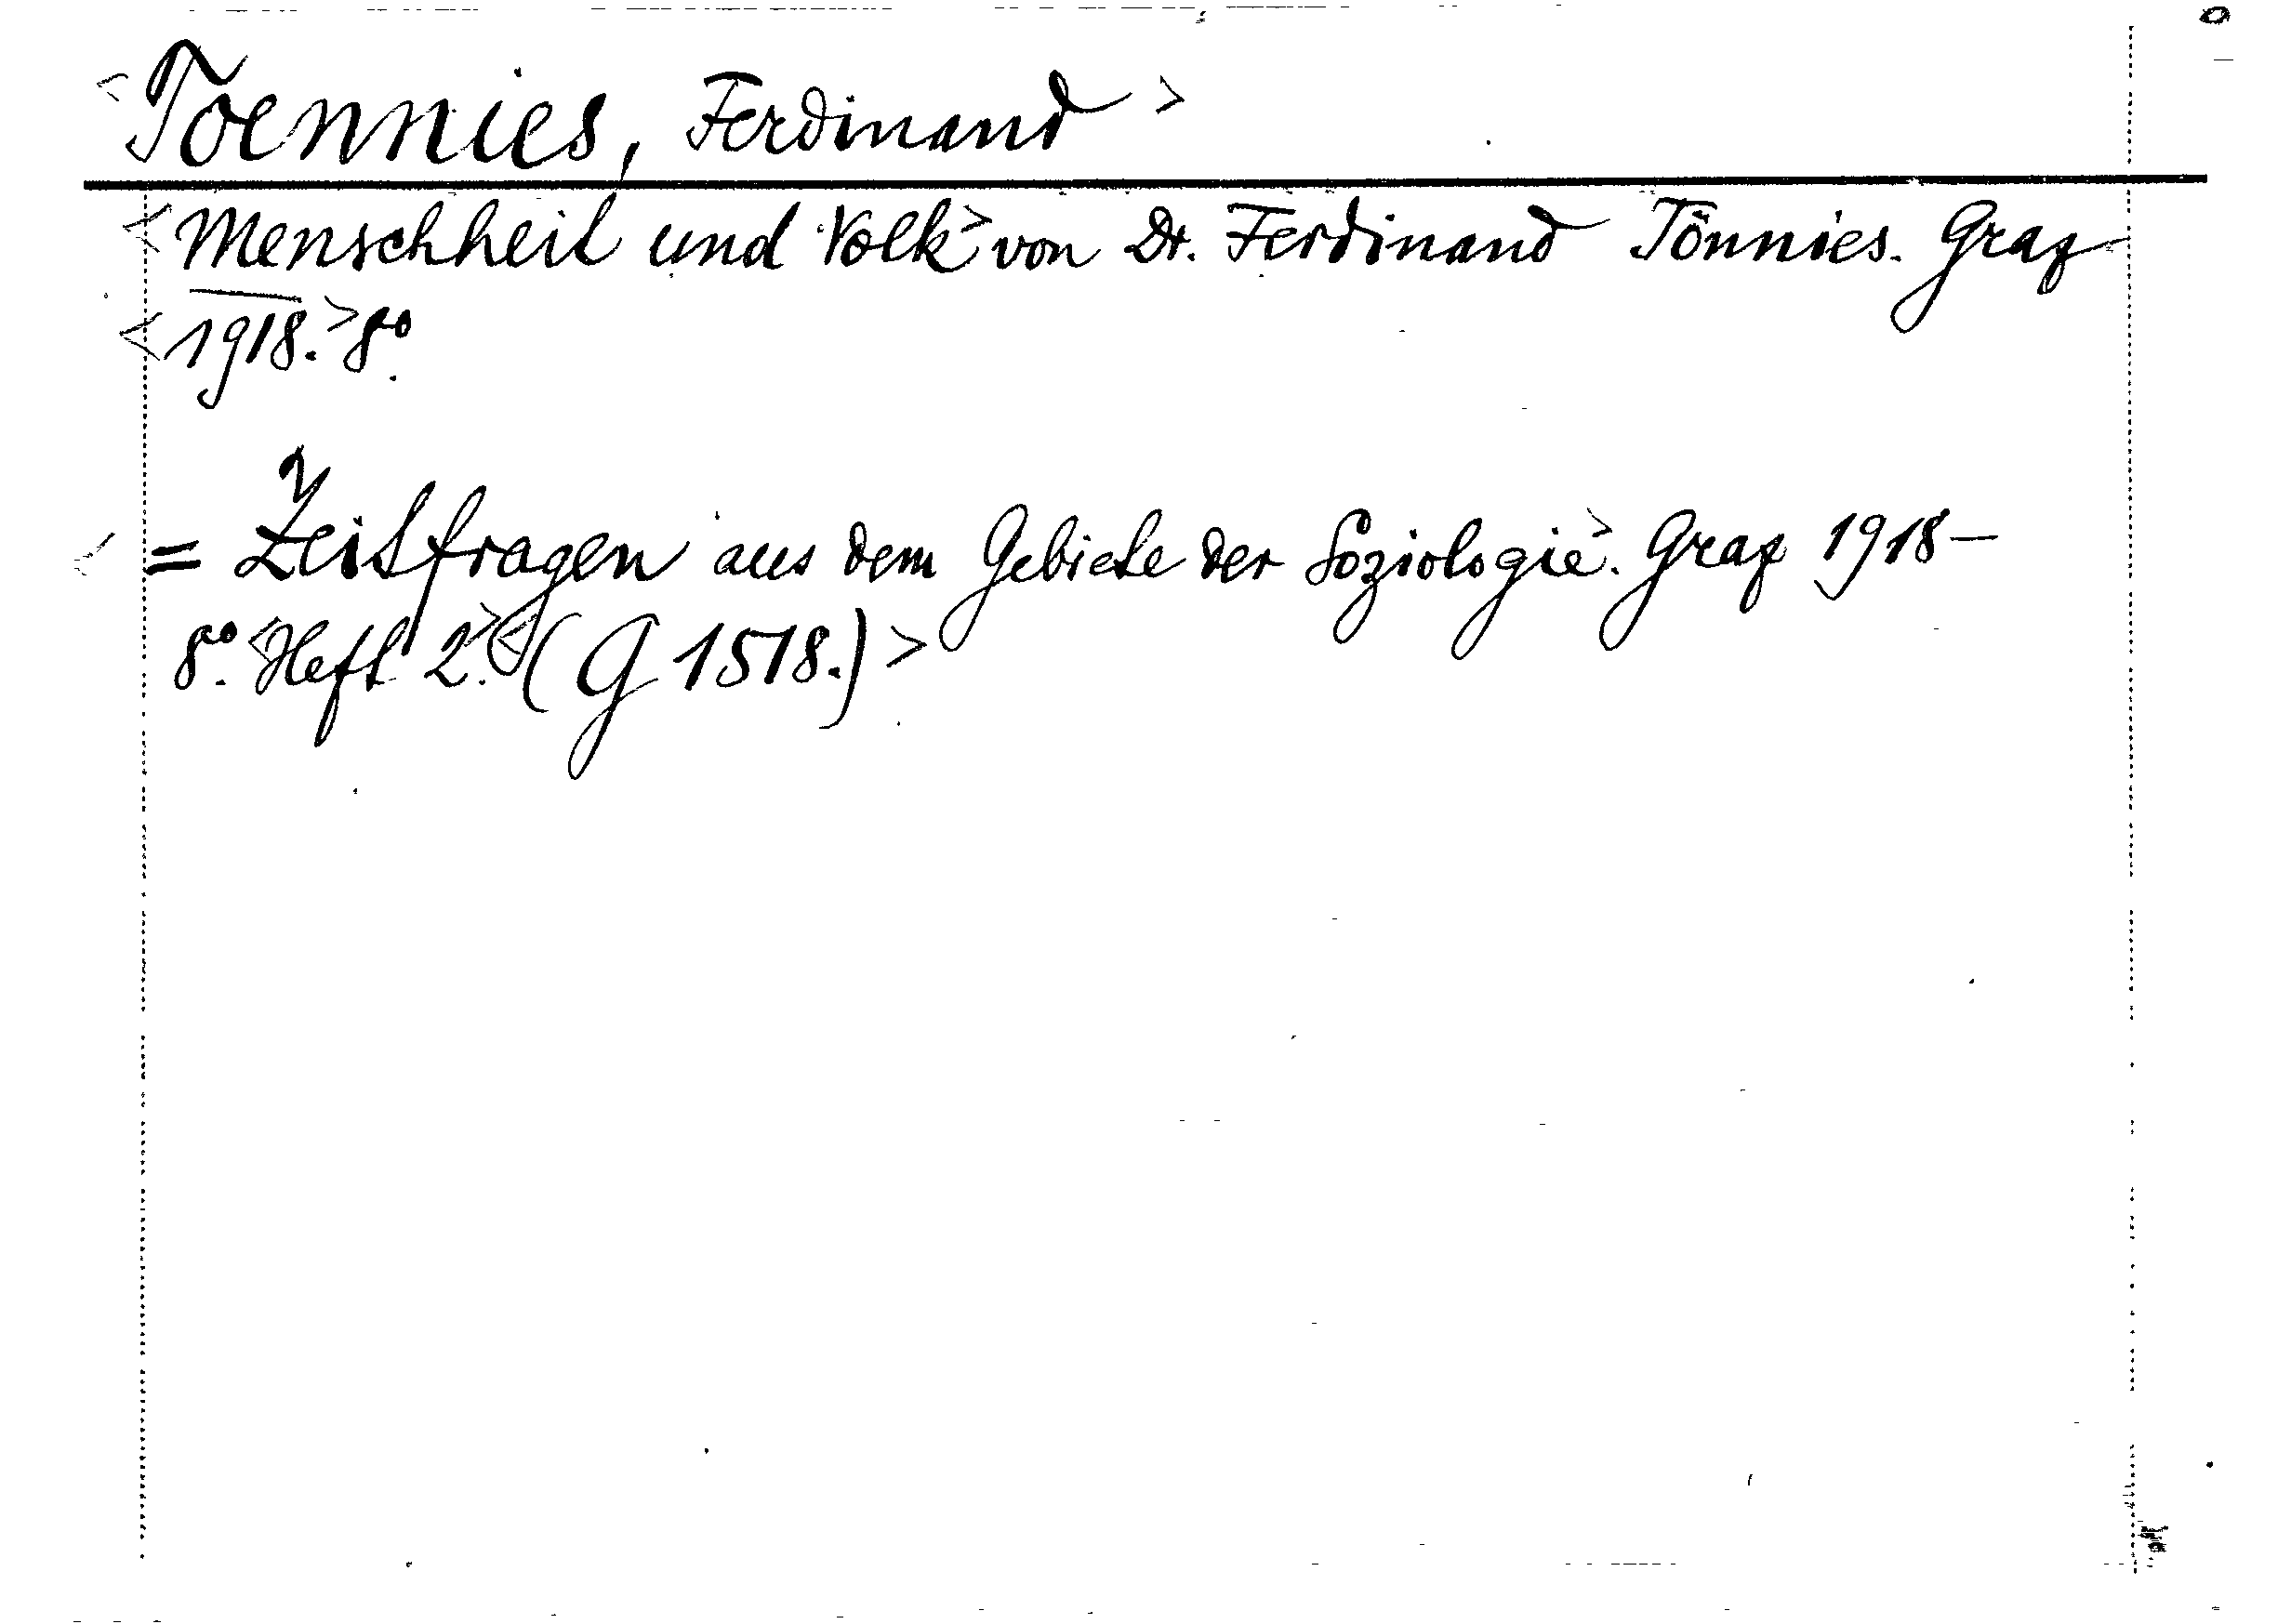 <Toennies, Ferdinand>
<Menschheit und Volk> von Dr. Ferdinand Tönnies. Graz
<1918.> 8°.
<= Zeitfragen aus dem Gebiete der Soziologie>. Graz 1918—
8°. <Heft 2.> <(G 1518.)>